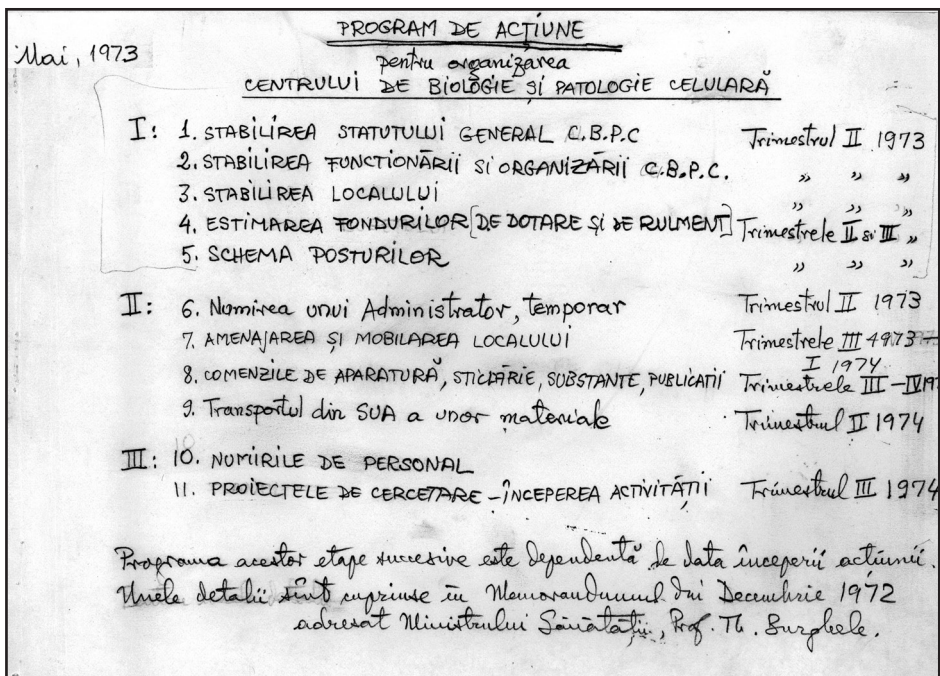 PROGRAM DE ACȚIUNE
Mai, 1973
pentru organizarea
CENTRULUI DE BIOLOGIE ȘI PATOLOGIE CELULARĂ
I: 1. STABILIREA STATUTULUI GENERAL C.B.P.C Trimestrul II 1973
2. STABILIREA FUNCTIONĂRII SI ORGANIZĂRII C.B.P.C. " " "
3. STABILIREA LOCALULUI " " "
4. ESTIMAREA FONDURILOR [DE DOTARE ȘI DE RULMENT] Trimestrele II si III "
5. SCHEMA POSTURILOR " " "
II: 6. Numirea unui Administrator, temporar Trimestrul II 1973
7. AMENAJAREA ȘI MOBILAREA LOCALULUI Trimestrele III 1973 –
I 1974
8. COMENZILE DE APARATURĂ, STICLĂRIE, SUBSTANTE, PUBLICATII Trimestrele III – IV 197
9. Transportul din SUA a unor materiale Trimestrul II 1974
III: 10. NUMIRILE DE PERSONAL
11. PROIECTELE DE CERCETARE – ÎNCEPEREA ACTIVITĂȚII Trimestrul III 1974
Programa acestor etape succesive este dependentă de data începerii acțiunii.
Unele detalii sînt cuprinse în Memorandumul din Decembrie 1972
adresat Ministrului Sănătății, Prof. Th. Burghele.